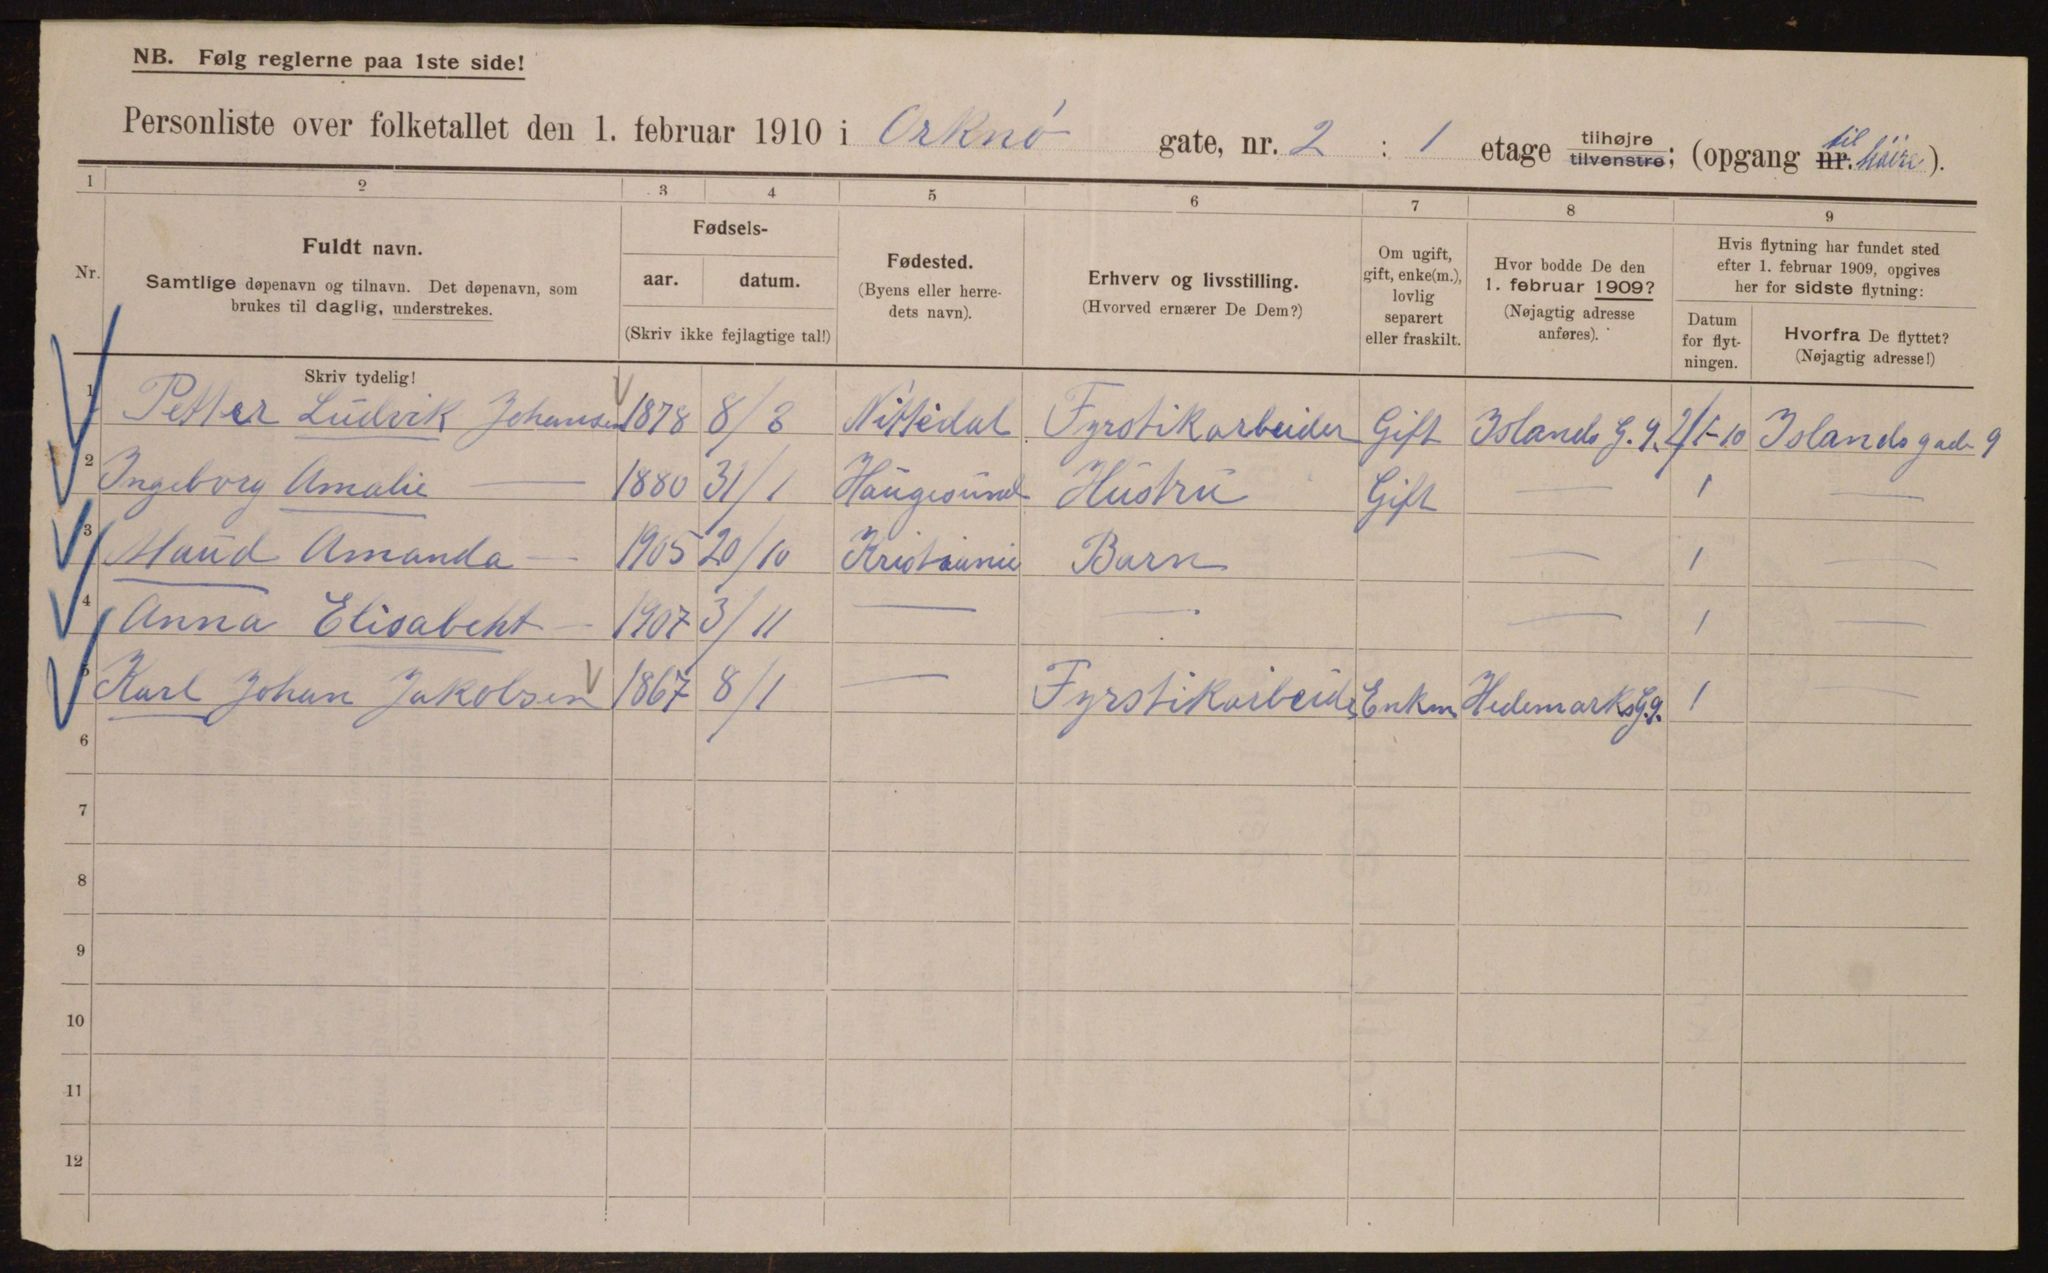 NB. Følg reglerne paa 1ste side!
Personliste over folketallet den 1. februar 1910 i Orknø gate, nr. 2 : 1 etage tilhøjre tilvenstre; (opgang nr. til høire).
1 2 3 4 5 6 7 8 9
Nr.
Fuldt navn.
Samtlige døpenavn og tilnavn. Det døpenavn, som
brukes til daglig, understrekes.
Skriv tydelig!
Fødsels-
aar. datum.
(Skriv ikke fejlagtige tal!)
Fødested.
(Byens eller herre-
dets navn).
Erhverv og livsstilling.
(Hvorved ernærer De Dem?)
Om ugift,
gift, enke(m.),
lovlig
separert
eller fraskilt.
Hvor bodde De den
1. februar 1909?
(Nøjagtig adresse
anføres).
Hvis flytning har fundet sted
efter 1. februar 1909, opgives
her for sidste flytning:
Datum
for flyt-
ningen.
Hvorfra De flyttet?
(Nøjagtig adresse!)
1 Petter Ludvik Johansen 1878 8/8 Nittedal Fyrstikarbeider Gift Islands G. 9. 2/1-10 Islandsgade 9
2 Ingeborg Amalie — 1880 31/1 Haugesund Hustru Gift — 1 —
3 Maud Amanda — 1905 20/10 Kristiania Barn — 1 —
4 Anna Elisabeht — 1907 3/11 — — — 1 —
5 Karl Johan Jakobsen 1867 8/1 — Fyrstikarbeider Enkm Hedemarks G. 9. 1 —
6
7
8
9
10
11
12